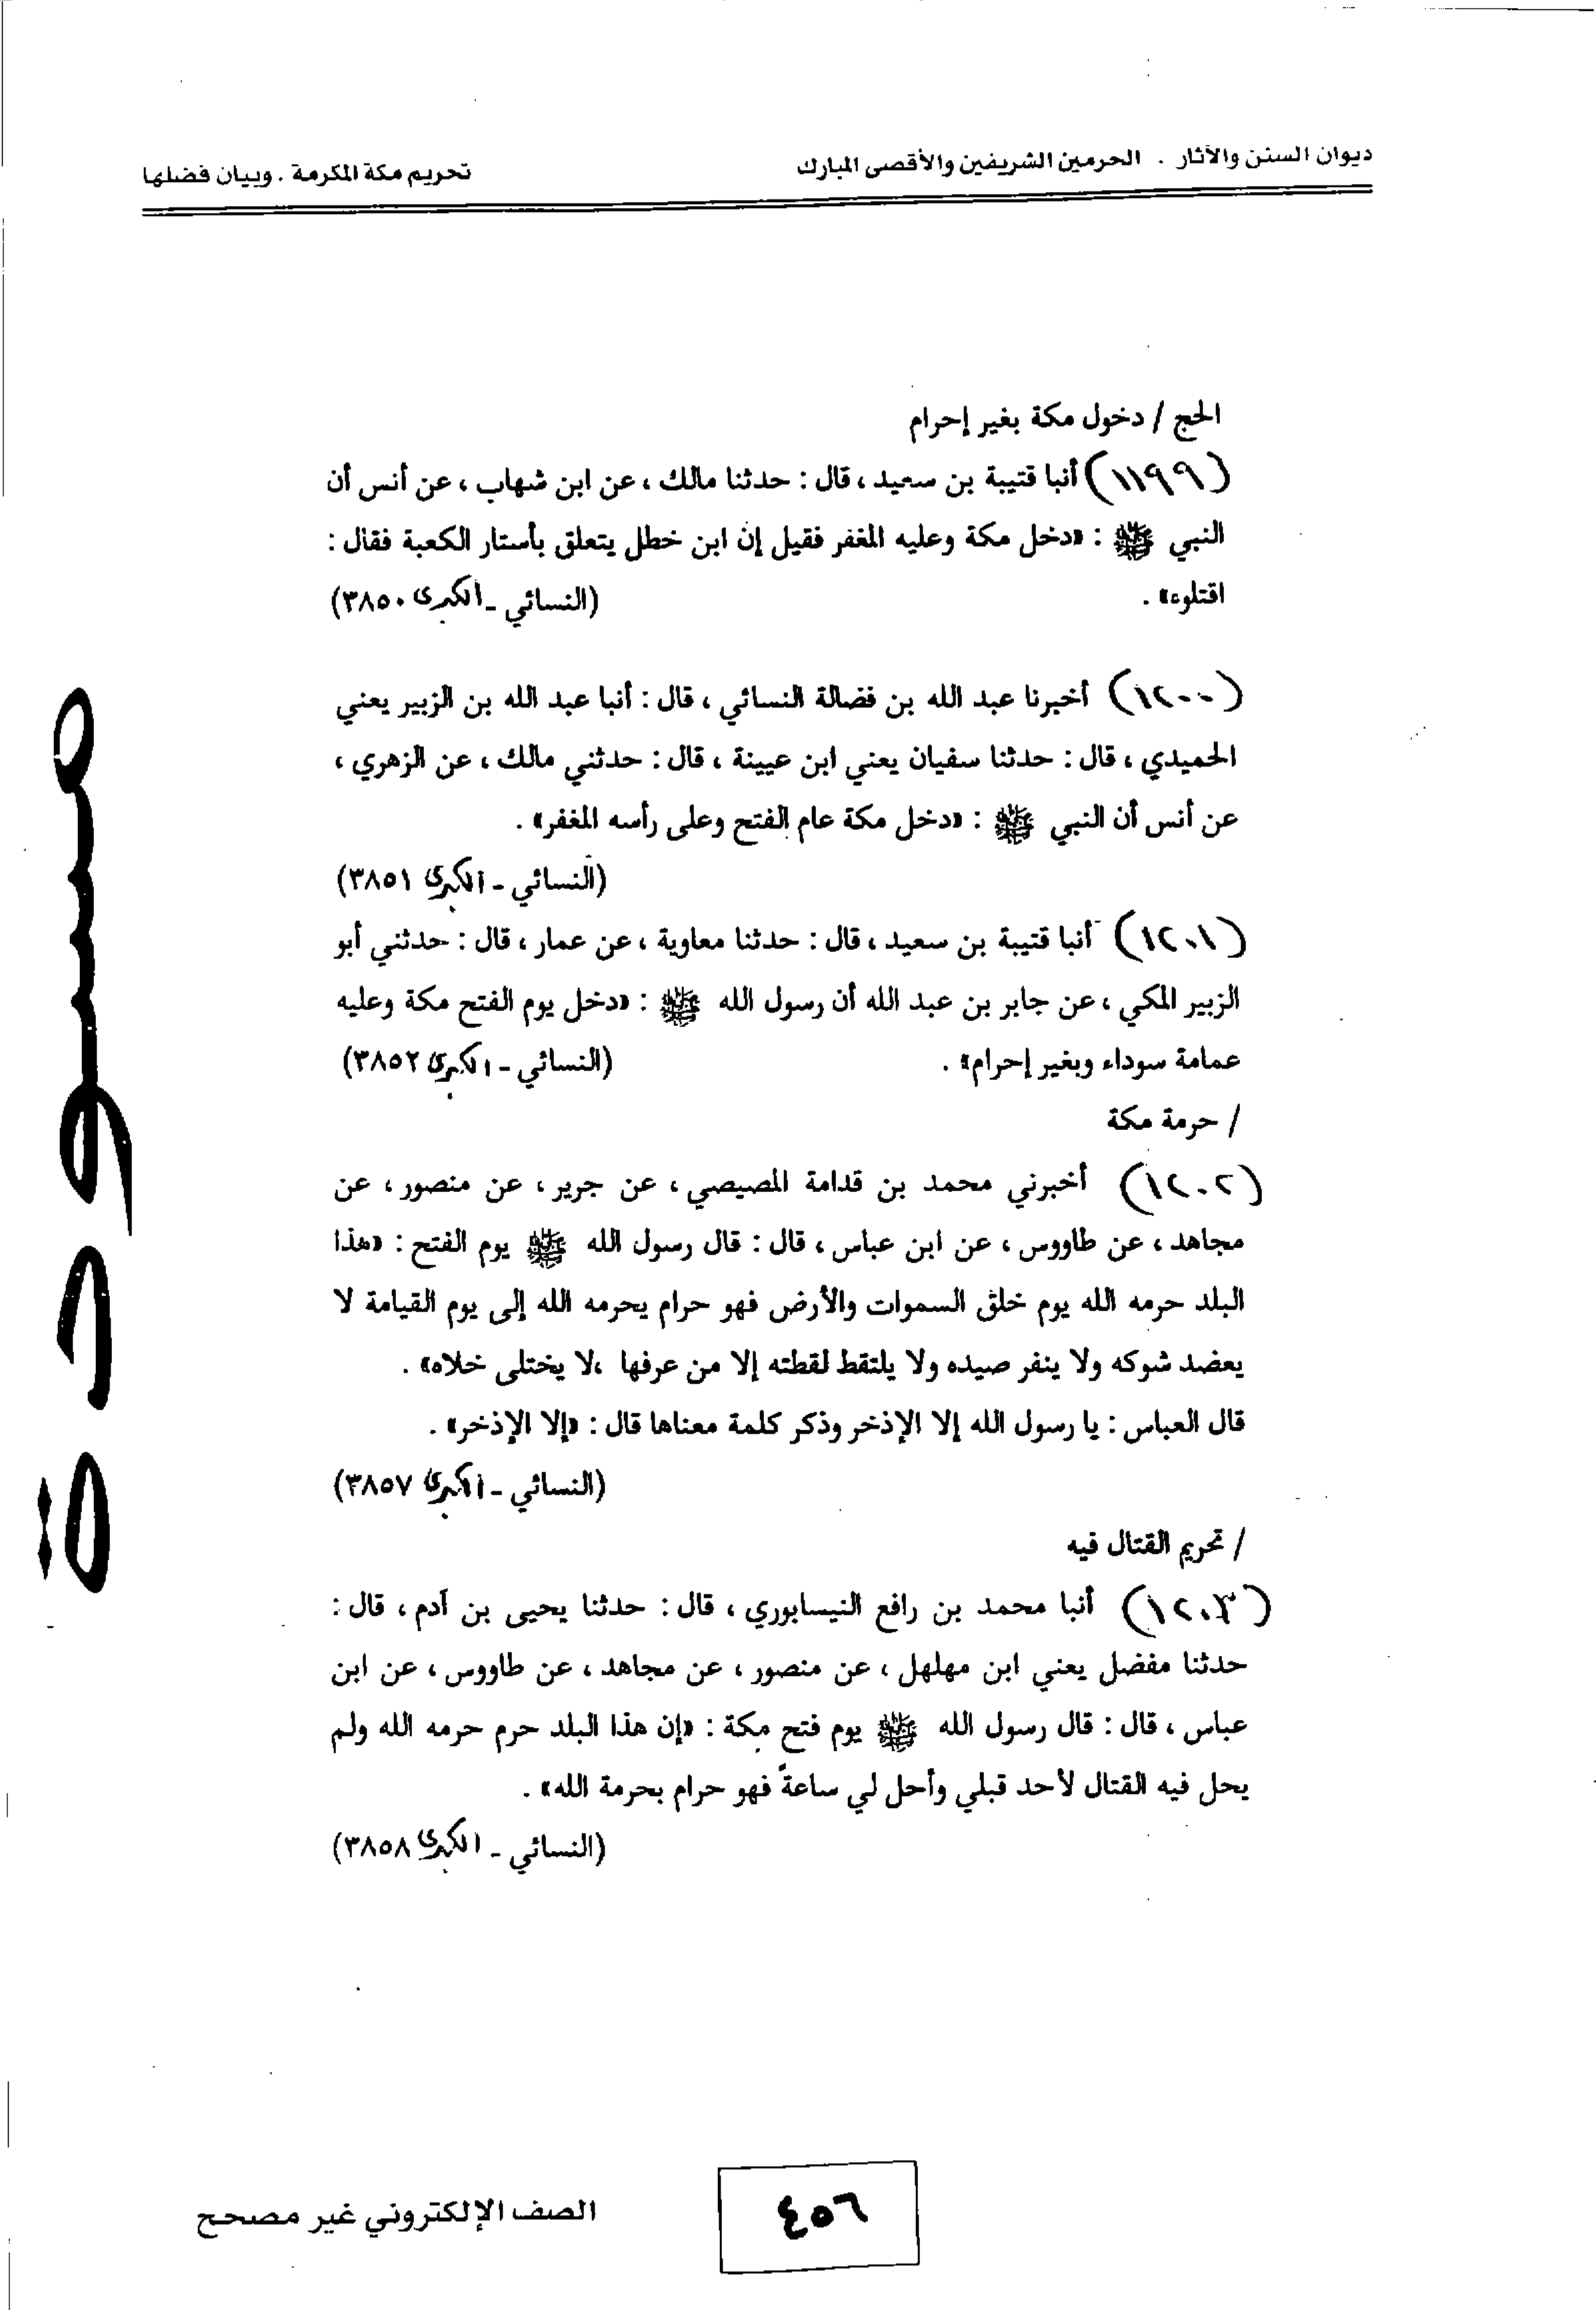 ديوان السنن والآثار . الحرمين الشريفين والأقصى المبارك
تحريم مكة المكرمة . وبيان فضلها
الحج / دخول مكة بغير إحرام
(١١٩٩) أنبا قتيبة بن سعيد ، قال : حدثنا مالك ، عن ابن شهاب ، عن أنس أن
النبي ﷺ : «دخل مكة وعليه المغفر فقيل إن ابن خطل يتعلق بأستار الكعبة فقال :
اقتلوه» .
(النسائي - الكبرى ٣٨٥٠)
(١٢٠٠) أخبرنا عبد الله بن فضالة النسائي ، قال : أنبا عبد الله بن الزبير يعني
الحميدي ، قال : حدثنا سفيان يعني ابن عيينة ، قال : حدثني مالك ، عن الزهري ،
عن أنس أن النبي ﷺ : «دخل مكة عام الفتح وعلى رأسه المغفر» .
(النسائي - الكبرى ٣٨٥١)
(١٢٠١) أنبا قتيبة بن سعيد ، قال : حدثنا معاوية ، عن عمار ، قال : حدثني أبو
الزبير المكي ، عن جابر بن عبد الله أن رسول الله ﷺ : «دخل يوم الفتح مكة وعليه
عمامة سوداء وبغير إحرام» .
(النسائي - الكبرى ٣٨٥٢)
/ حرمة مكة
(١٢٠٢) أخبرني محمد بن قدامة المصيصي ، عن جرير ، عن منصور ، عن
مجاهد ، عن طاووس ، عن ابن عباس ، قال : قال رسول الله ﷺ يوم الفتح : «هذا
البلد حرمه الله يوم خلق السموات والأرض فهو حرام يحرمه الله إلى يوم القيامة لا
يعضد شوكه ولا ينفر صيده ولا يلتقط لقطته إلا من عرفها ،لا يختلى خلاه» .
قال العباس : يا رسول الله إلا الإذخر وذكر كلمة معناها قال : «إلا الإذخر» .
(النسائي - الكبرى ٣٨٥٧)
/ تحريم القتال فيه
(١٢٠٣) أنبا محمد بن رافع النيسابوري ، قال : حدثنا يحيى بن آدم ، قال :
حدثنا مفضل يعني ابن مهلهل ، عن منصور ، عن مجاهد ، عن طاووس ، عن ابن
عباس ، قال : قال رسول الله ﷺ يوم فتح مكة : «إن هذا البلد حرم حرمه الله ولم
يحل فيه القتال لأحد قبلي وأحل لي ساعةً فهو حرام بحرمة الله» .
(النسائي - الكبرى ٣٨٥٨)
مسودة
٤٥٦
الصف الإلكتروني غير مصحح